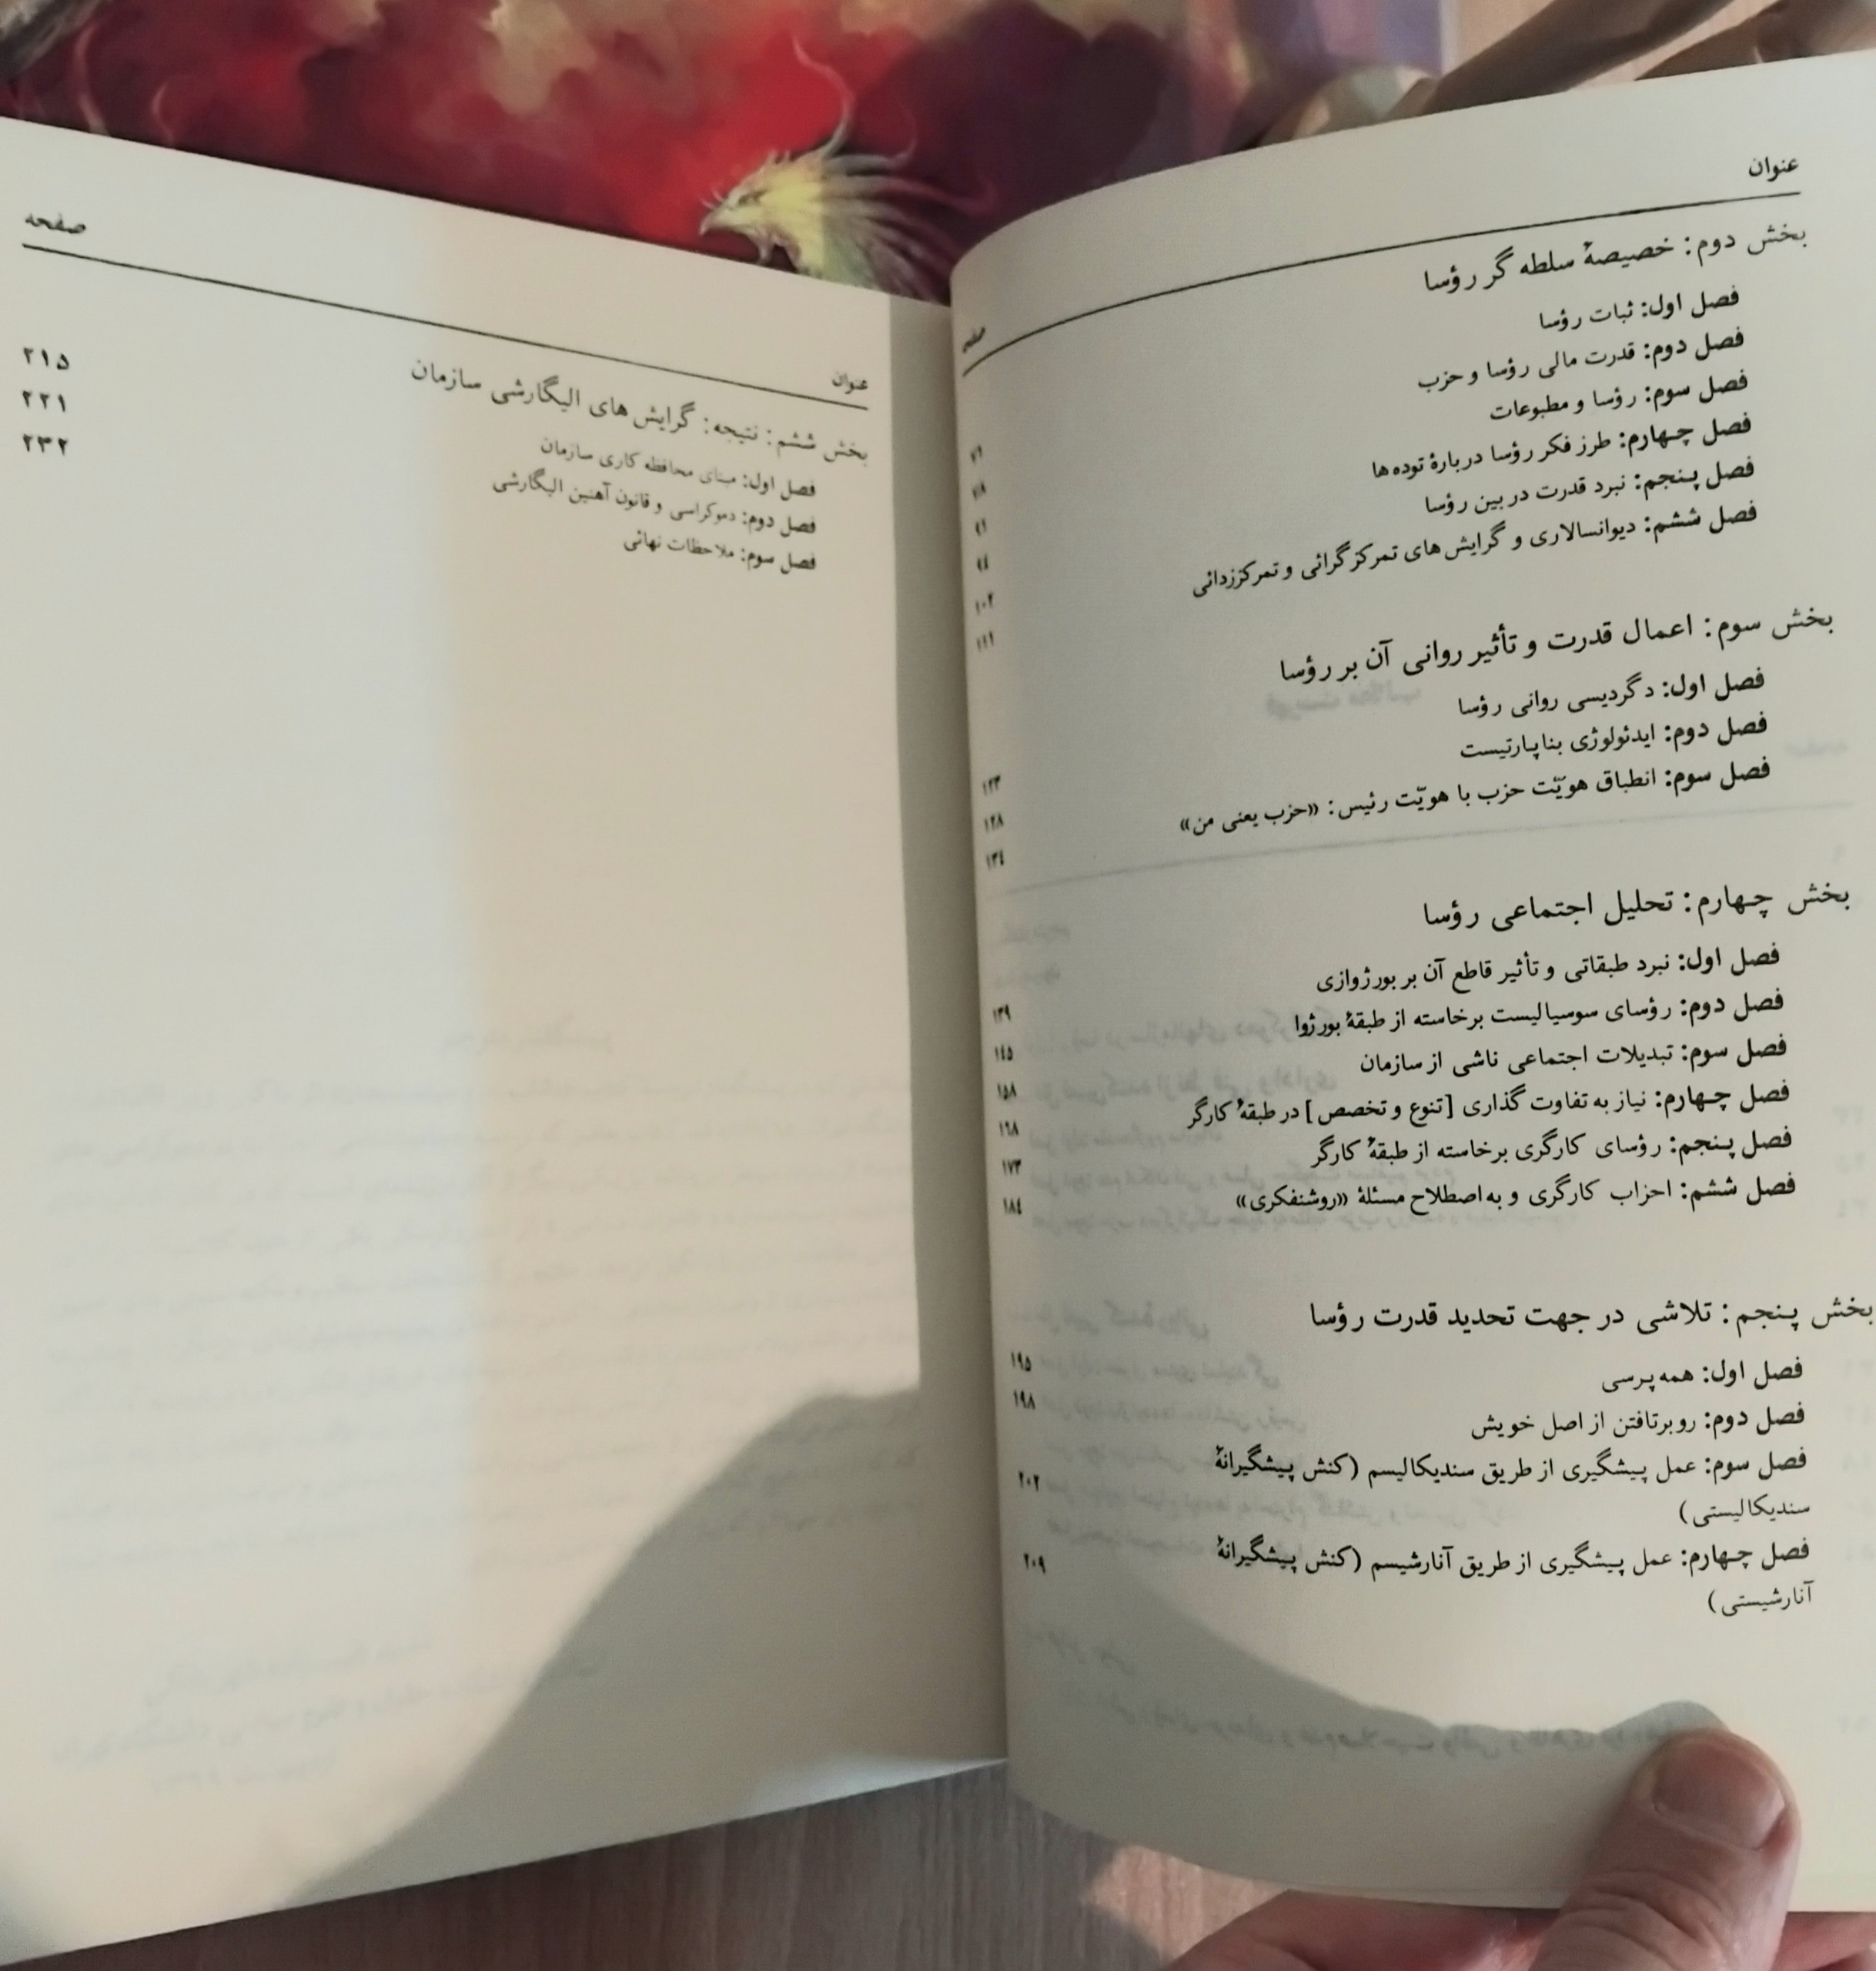 عنوان
صفحه
بخش دوم: خصیصهٔ سلطه گر رؤسا
فصل اول: ثبات رؤسا ۷۱
فصل دوم: قدرت مالی رؤسا و حزب ۷۸
فصل سوم: رؤسا و مطبوعات ۹۱
فصل چهارم: طرز فکر رؤسا دربارهٔ توده ها ۹٤
فصل پنجم: نبرد قدرت در بین رؤسا ۱۰۲
فصل ششم: دیوانسالاری و گرایش های تمرکزگرائی و تمرکززدائی ۱۱۱
بخش سوم: اعمال قدرت و تأثیر روانی آن بر رؤسا
فصل اول: دگردیسی روانی رؤسا ۱۲۳
فصل دوم: ایدئولوژی بناپارتیست ۱۲۸
فصل سوم: انطباق هویّت حزب با هویّت رئیس: «حزب یعنی من» ۱۳٤
بخش چهارم: تحلیل اجتماعی رؤسا
فصل اول: نبرد طبقاتی و تأثیر قاطع آن بر بورژوازی ۱۳۹
فصل دوم: رؤسای سوسیالیست برخاسته از طبقهٔ بورژوا ۱٤۵
فصل سوم: تبدیلات اجتماعی ناشی از سازمان ۱۵۸
فصل چهارم: نیاز به تفاوت گذاری [تنوع و تخصص] در طبقهٔ کارگر ۱۹۸
فصل پنجم: رؤسای کارگری برخاسته از طبقهٔ کارگر ۱۷۳
فصل ششم: احزاب کارگری و به اصطلاح مسئلهٔ «روشنفکری» ۱۸٤
بخش پنجم: تلاشی در جهت تحدید قدرت رؤسا
فصل اول: همه پرسی ۱۹۵
فصل دوم: روبرتافتن از اصل خویش ۱۹۸
فصل سوم: عمل پیشگیری از طریق سندیکالیسم (کنش پیشگیرانهٔ ۲۰۲
سندیکالیستی)
فصل چهارم: عمل پیشگیری از طریق آنارشیسم (کنش پیشگیرانهٔ ۲۰۹
آنارشیستی)
عنوان
صفحه
بخش ششم: نتیجه: گرایش های الیگارشی سازمان
فصل اول: مبنای محافظه کاری سازمان ۲۱۵
فصل دوم: دموکراسی و قانون آهنین الیگارشی ۲۲۱
فصل سوم: ملاحظات نهائی ۲۳۲